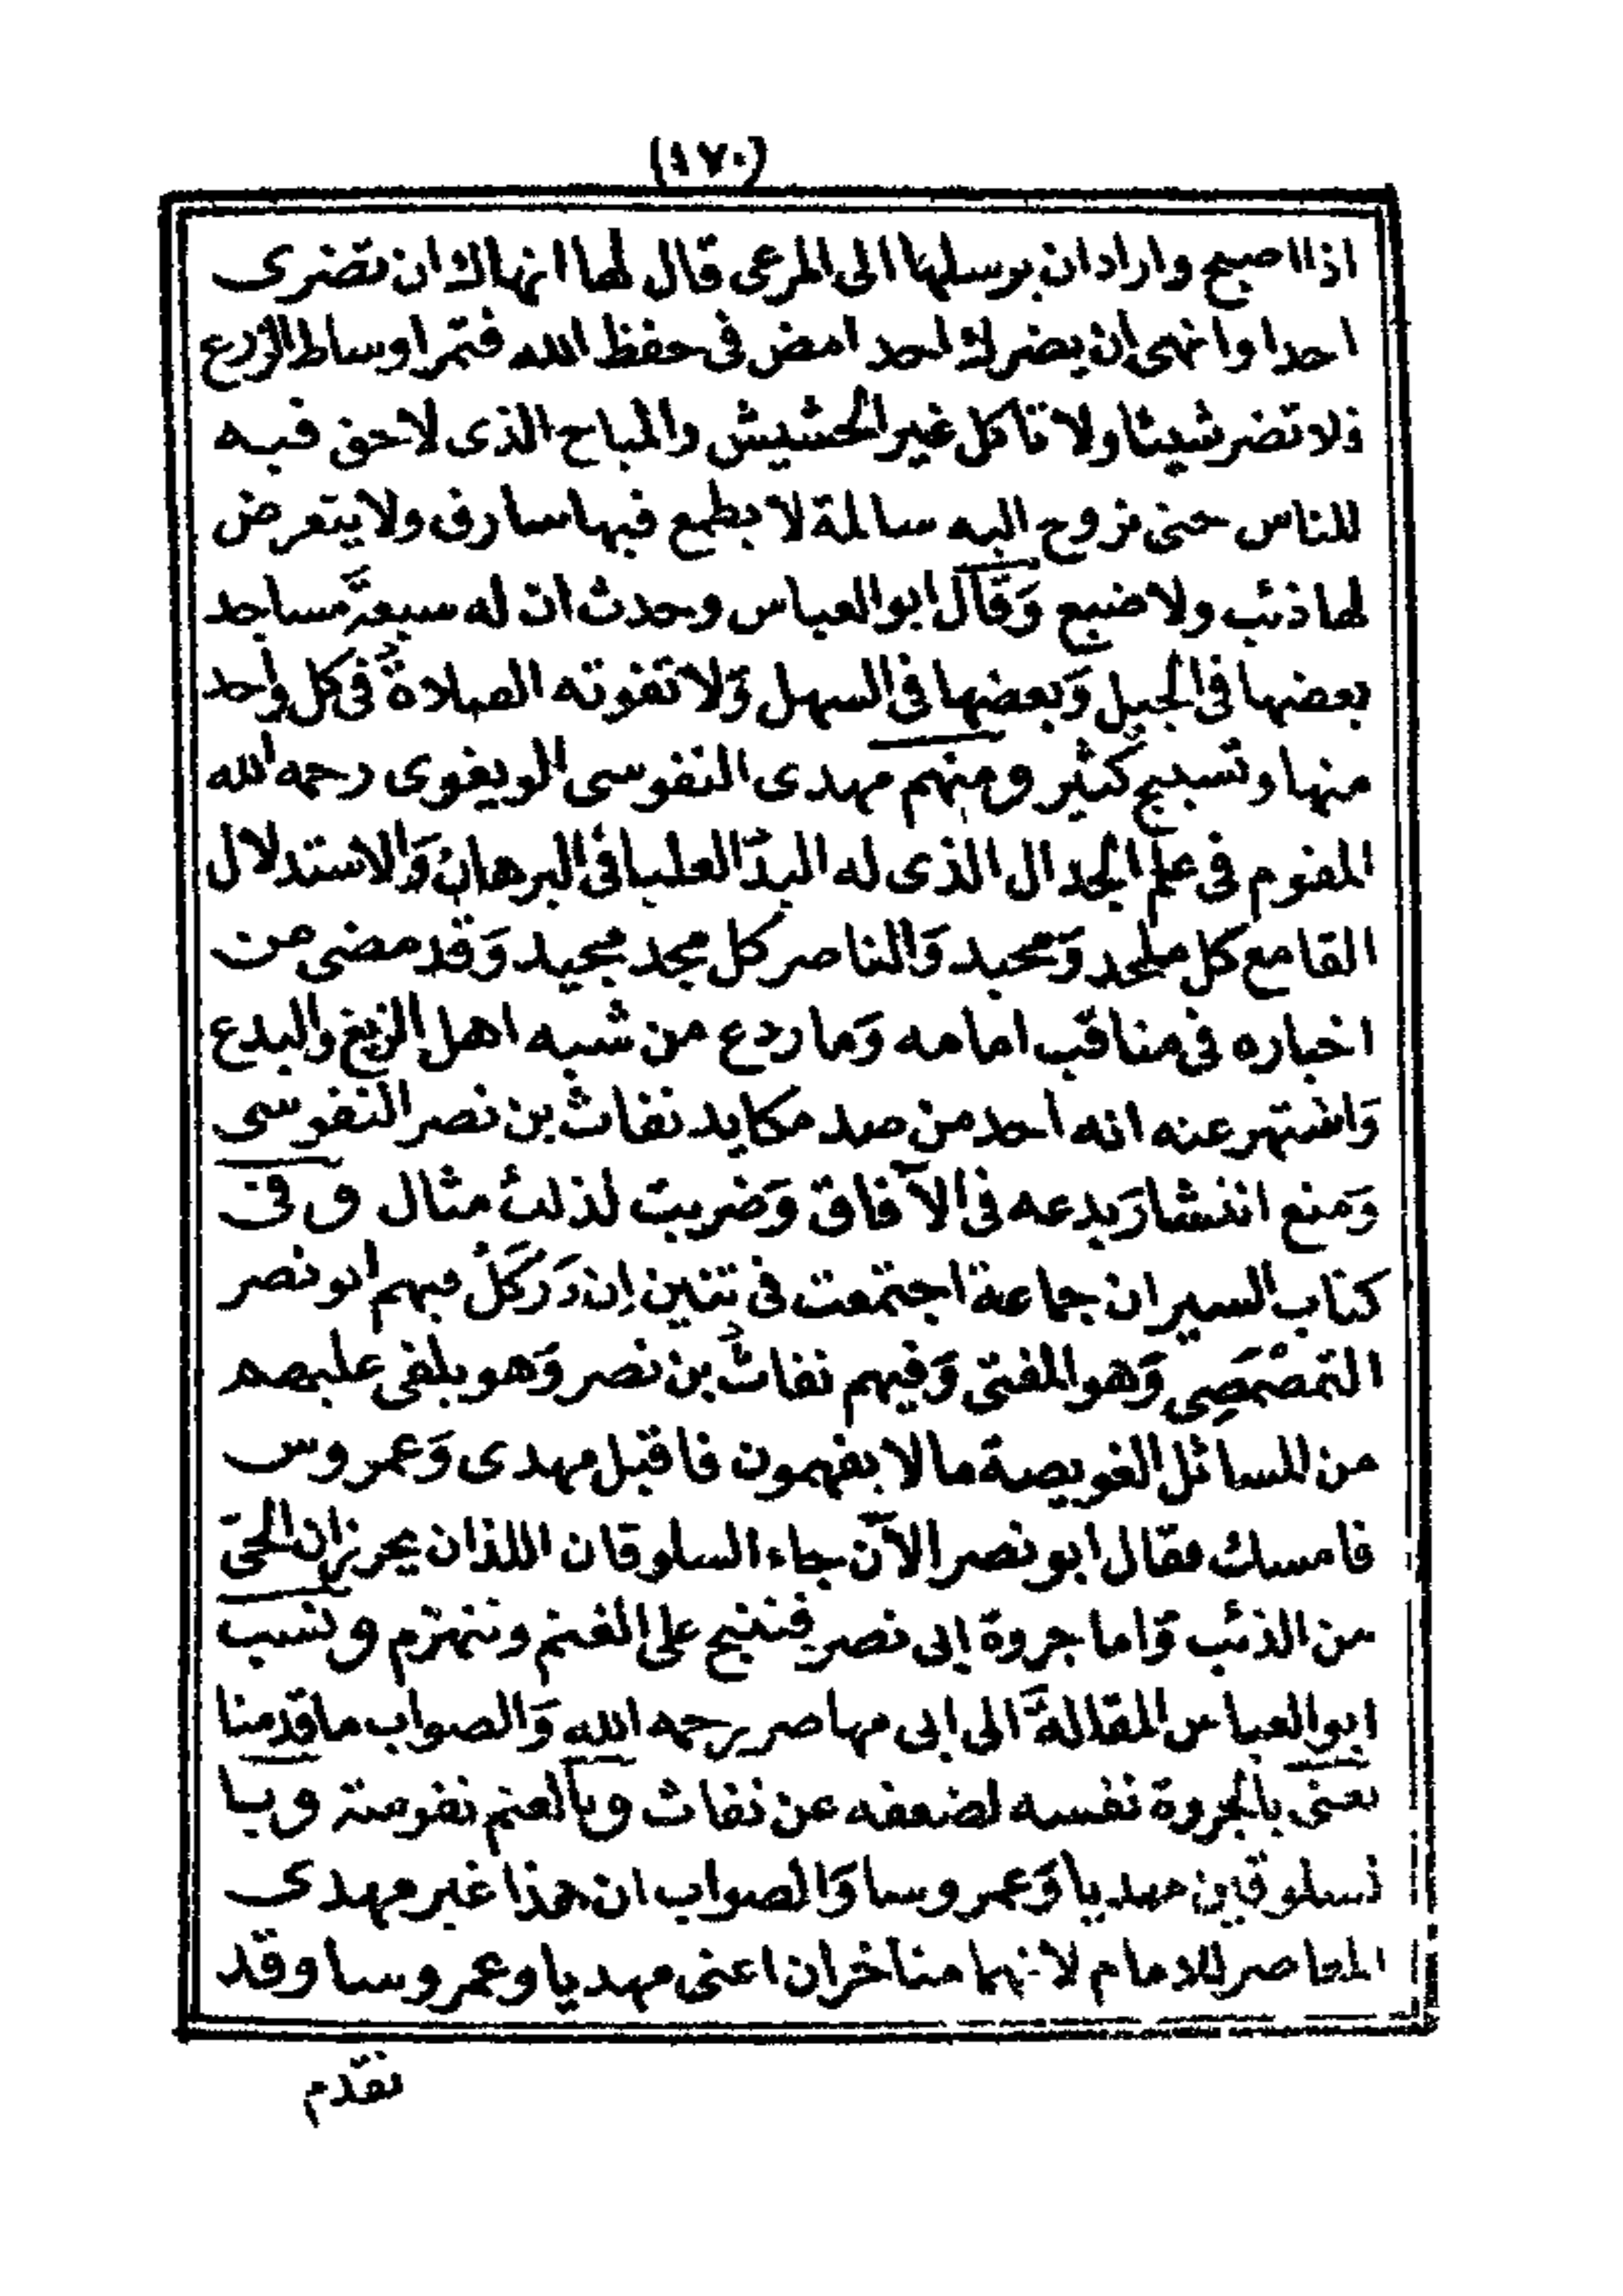 (١٧٠)
اذا اصبح واراد ان يرسلها الى المرعى قال لها انهاك ان تضرى
احدا وانهى ان يضرك احد امض فى حفظ الله فتمر اوساط الزرع
فلا تضر شيئا ولا تأكل غير الحشيش والمباح الذى لا حق فيه
للناس حتى تروح اليه سالمة لا يطمع فيها سارق ولا يتعرض
لها ذئب ولا ضبع وَقال ابو العباس وحدث ان له سبعة مساجد
بعضها فى الجبل وَبعضها فى السهل وَلا تفوته الصلاة فى كل واحد
منها وتسبيح كثير ومنهم مهدى النفوسى الويغوى رحمه الله
المفوم فى علم الجدال الذى له اليد العليا فى البرهان وَالاستدلال
القامع كل ملحد وَمحيد وَالناصر كل مجد مجيد وَقد مضى من
اخباره فى مناقب امامه وَما ردع من شبه اهل الزيغ والبدع
وَاشتهر عنه انه احد من صد مكايد نفاث بن نصر النفوسى
وَمنع انتشار بدعه فى الآفاق وَضربت لذلك مثال وفى
كتاب السير ان جماعة اجتمعت فى تنين اِن دَرَكَلْ فيهم ابو نصر
التمْصَمَصِى وَهو المفتى وَفيهم نفاث بن نصر وَهو يلقى عليهم
من المسائل الغويصة ما لا يفهمون فاقبل مهدى وَعمروس
فامسك فقال ابو نصر الآن جاء السلوقان اللذان يحرزان الحق
من الذئب وَاما جروة ابى نصر فتنبح على الغنم وتنهزم ونسب
ابو العباس المقالة الى ابى مهاصر رحمه الله وَالصواب ما قدمنا
يعنى بالجروة نفسه لضعفه عن نفاث وبالغنم نفوسة وبا
لسلوقين مهديا وَعمروسا وَالصواب ان هذا غير مهدى
المعاصر للامام لانهما متاخران اعنى مهديا وعمروسا وقد
تقدم